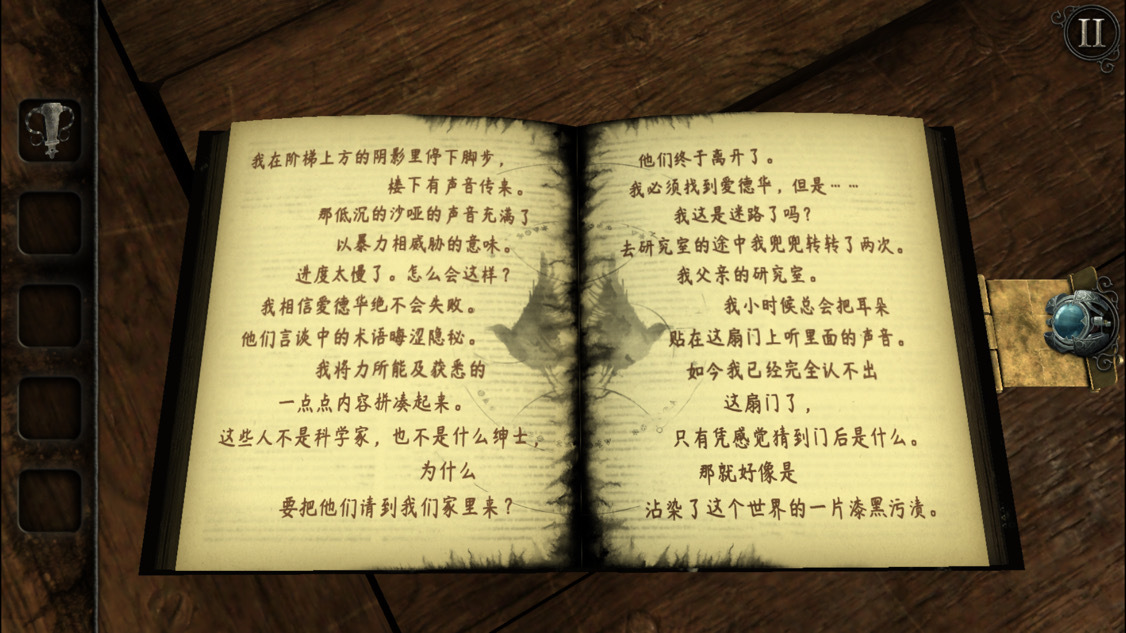 我在阶梯上方的阴影里停下脚步，
楼下有声音传来。
那低沉的沙哑的声音充满了
以暴力相威胁的意味。
进度太慢了。怎么会这样？
我相信爱德华绝不会失败。
他们言谈中的术语晦涩隐秘。
我将力所能及获悉的
一点点内容拼凑起来。
这些人不是科学家，也不是什么绅士，
为什么
要把他们请到我们家里来？
他们终于离开了。
我必须找到爱德华，但是……
我这是迷路了吗？
去研究室的途中我兜兜转转了两次。
我父亲的研究室。
我小时候总会把耳朵
贴在这扇门上听里面的声音。
如今我已经完全认不出
这扇门了，
只有凭感觉猜到门后是什么。
那就好像是
沾染了这个世界的一片漆黑污渍。